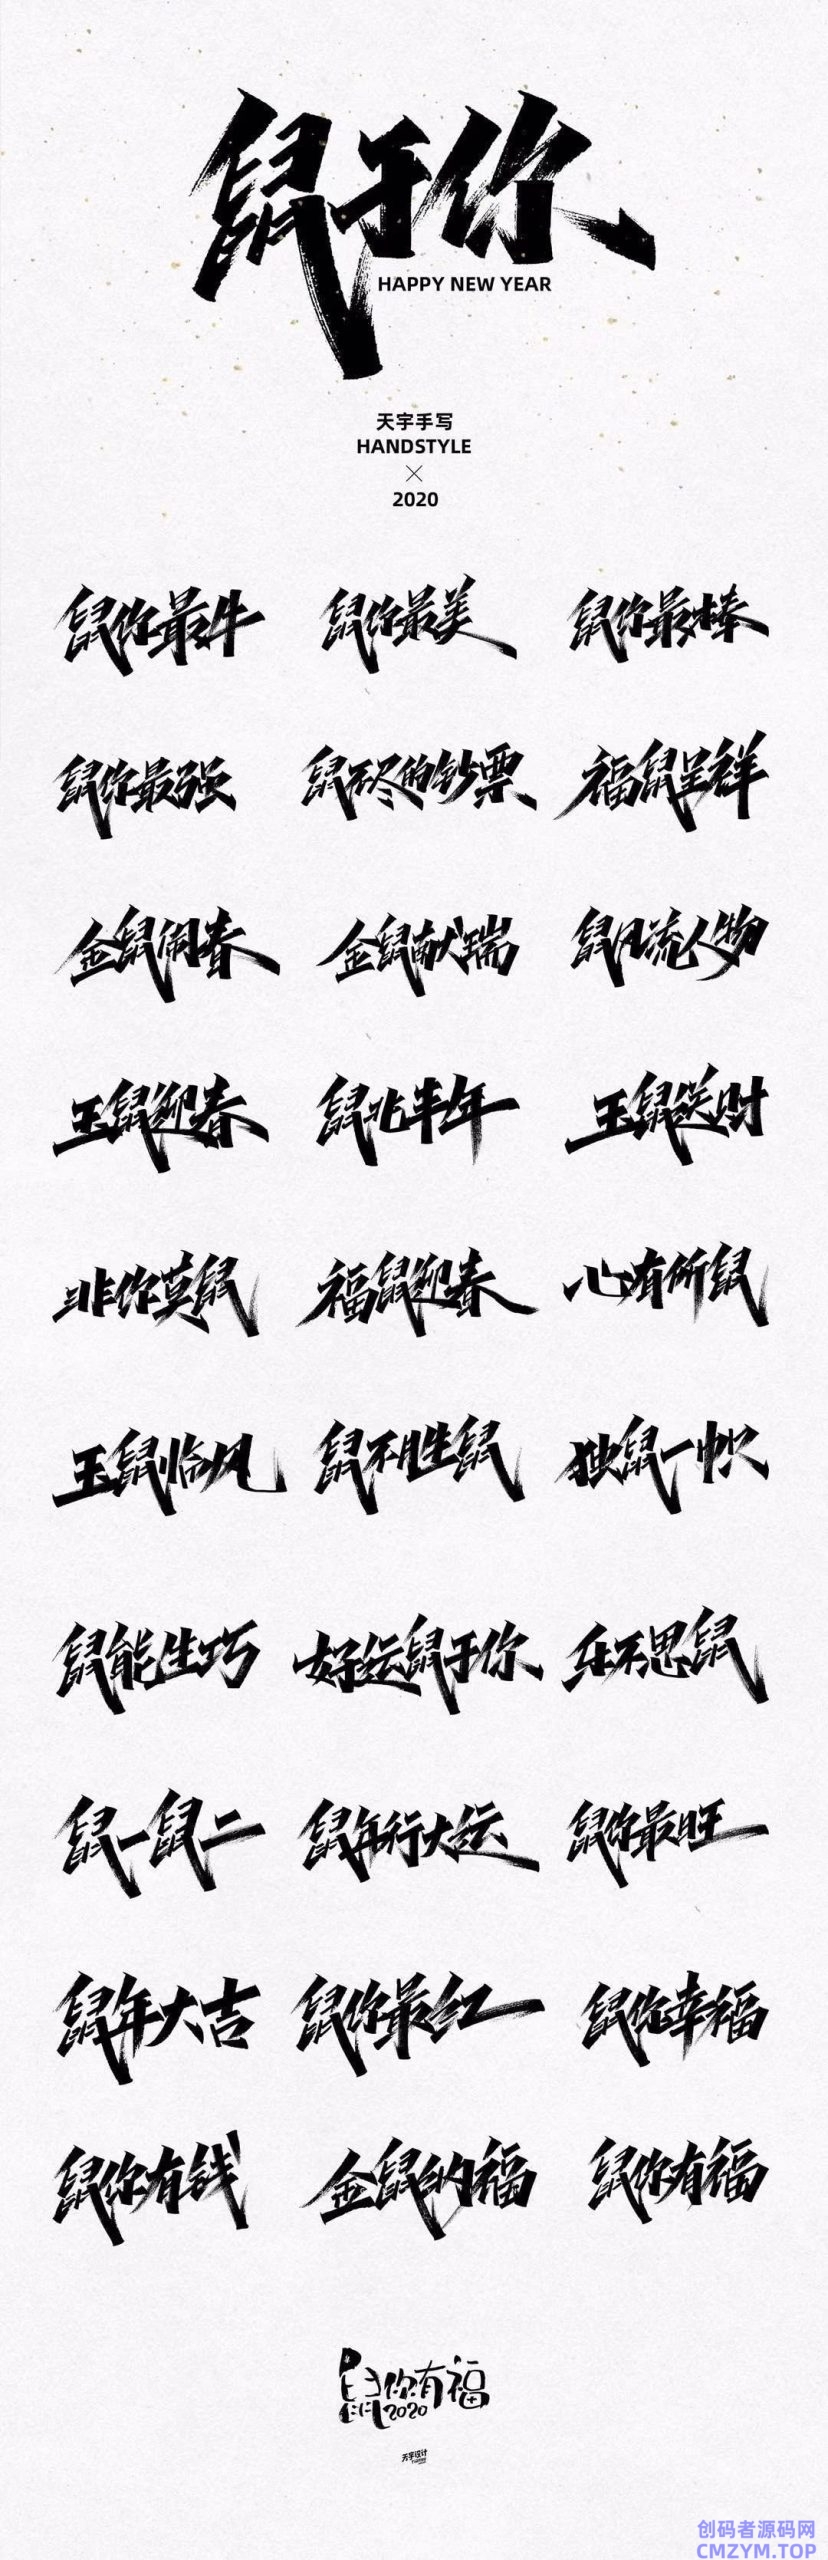 鼠于你
HAPPY NEW YEAR
天宇手写
HANDSTYLE
2020
鼠你最牛 鼠你最美 鼠你最棒
鼠你最强 鼠不尽的钞票 福鼠呈祥
金鼠闹春 金鼠献瑞 鼠风流人物
玉鼠迎春 鼠兆丰年 玉鼠送财
非你莫鼠 福鼠迎春 心有所鼠
玉鼠临风 鼠不胜鼠 独鼠一帜
鼠能生巧 好运鼠于你 乐不思鼠
鼠一鼠二 鼠年行大运 鼠你最旺
鼠年大吉 鼠你最红 鼠你幸福
鼠你有钱 金鼠纳福 鼠你有福
鼠你有福
2020
天宇设计
创码者源码网
CMZYM.TOP